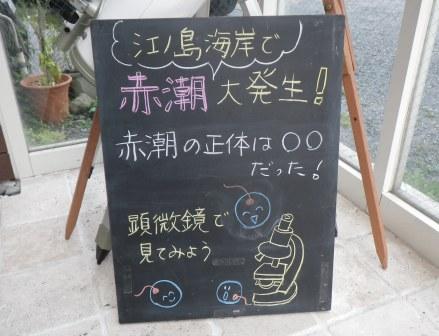 江ノ島海岸で
赤潮大発生!
赤潮の正体は〇〇
だった!
顕微鏡で
見てみよう